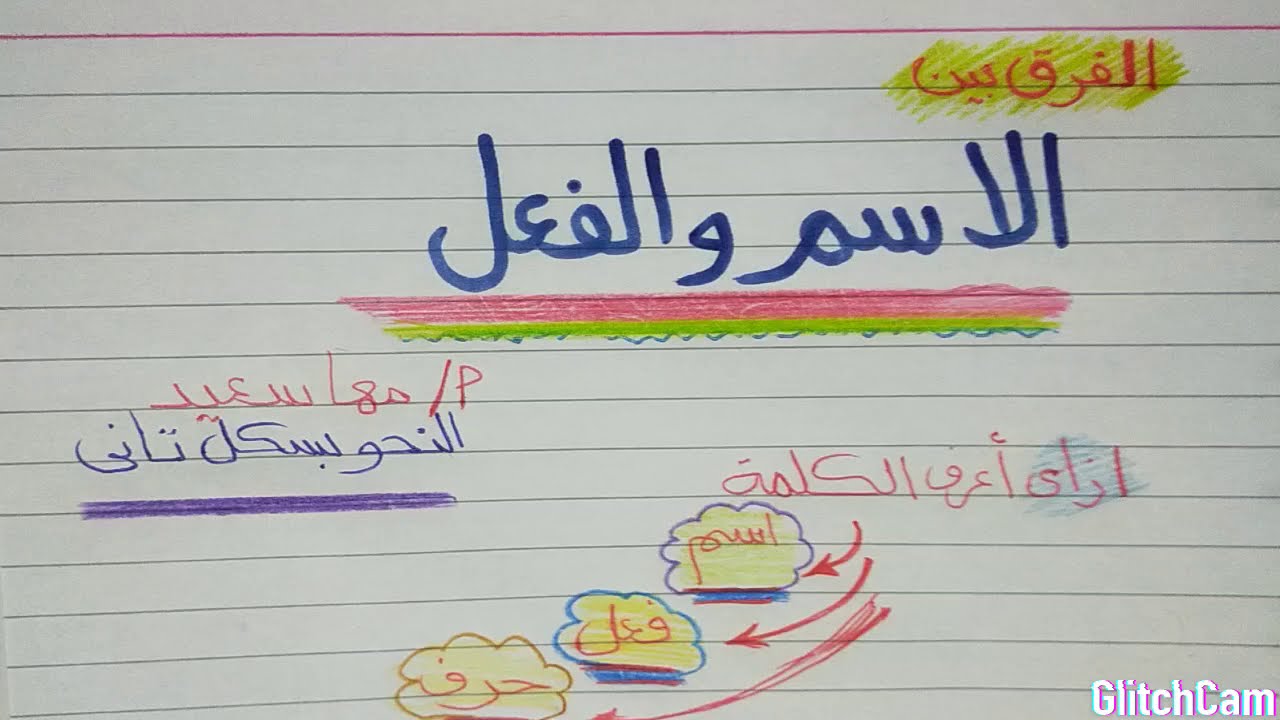 الفرق بين
الاسم والفعل
م/ مها سعيد
النحو بشكل تانى
ازاى أعرف الكلمة
اسم
فعل
حرف
GlitchCam